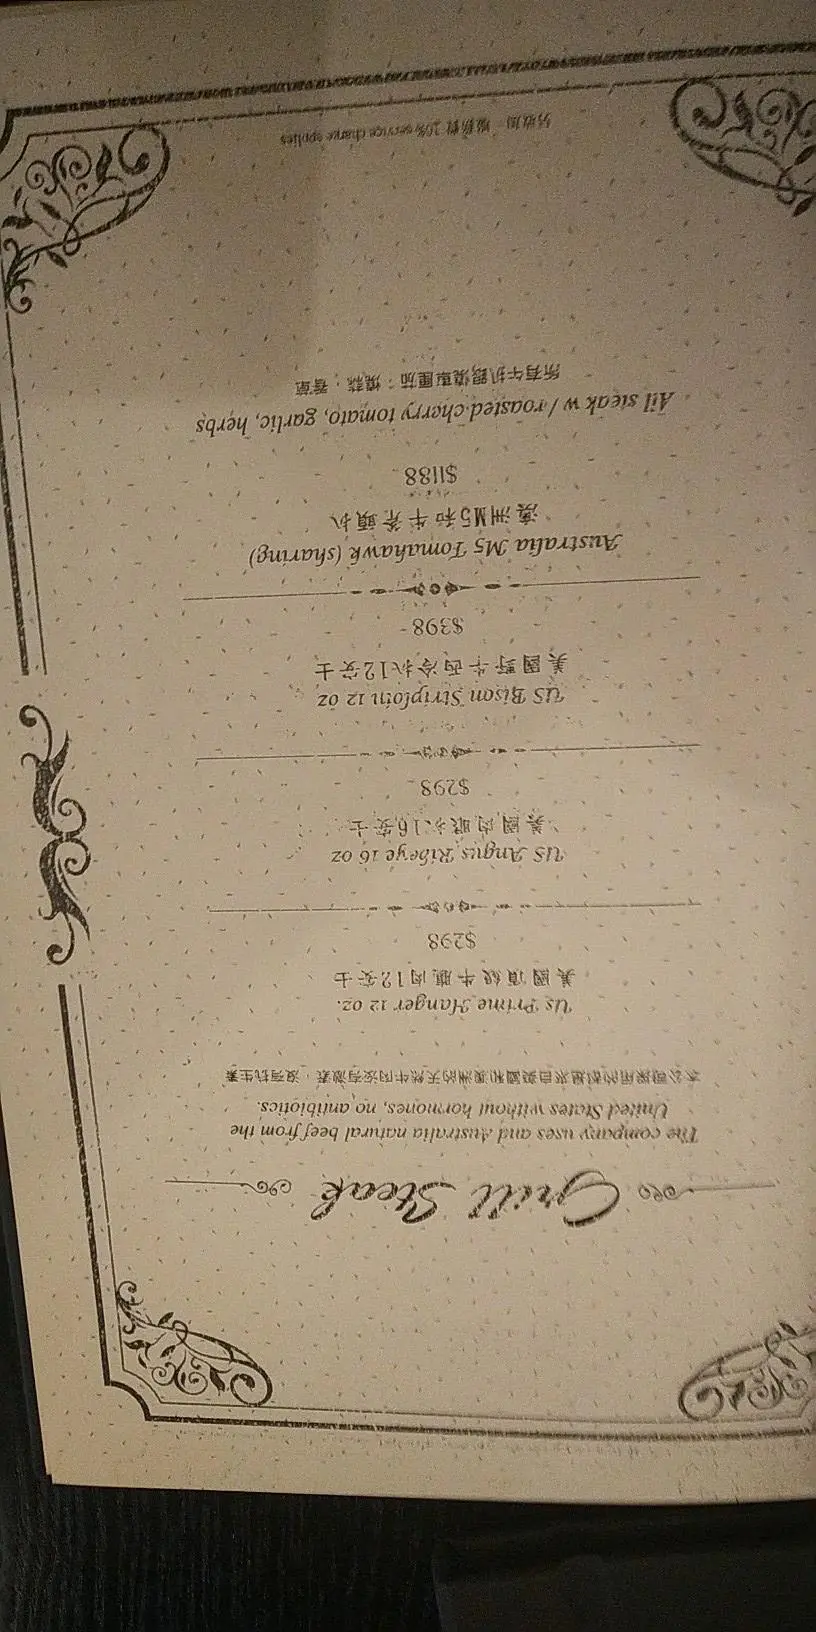 Grill Steak
The company uses and Australia natural beef from the
United States without hormones, no antibiotics.
本公司採用的都是來自美國和澳洲的天然牛肉沒有激素，沒有抗生素
Us Prime Hanger 12 oz.
美國頂級牛膈肉12安士
$298
US Angus Ribeye 16 oz
美國肉眼扒16安士
$298
US Bison Striploin 12 oz
美國野牛西冷扒12安士
$398
Australia M5 Tomahawk (sharing)
澳洲M5和牛斧頭扒
$1188
All steak w / roasted cherry tomato, garlic, herbs
所有牛扒跟燒車厘茄，燒蒜，香草
另收加一服務費 10% service charge applies